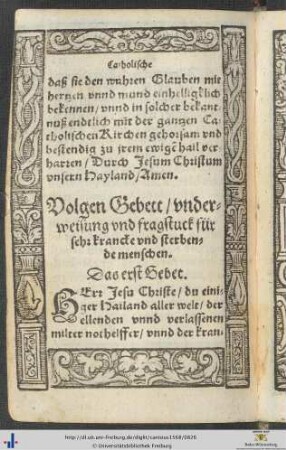 Catholische
daß sie den wahren Glauben mit
hertzen vnnd mund einhelligklich
bekennen / vnnd in solcher bekant-
nuß endtlich mit der gantzen Ca-
tholischen Kirchen gehorsam vnd
bestendig zu jrem ewigē hail ver-
harren / Durch Jesum Christum
vnsern Hayland / Amen.
Volgen Gebett / vnder-
weisung vnd fragstuck für
sehr krancke vnd sterben-
de menschen.
Das erst Gebet.
HErr Jesu Christe / du eini-
ger Hailand aller welt / der
ellenden vnnd verlassenen
milter nothelffer / vnnd der kran-
http://dl.ub.uni-freiburg.de/diglit/canisius1569/0826
© Universitätsbibliothek Freiburg